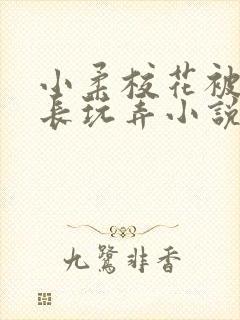 小柔校花被
長玩弄小說
九鷺非香